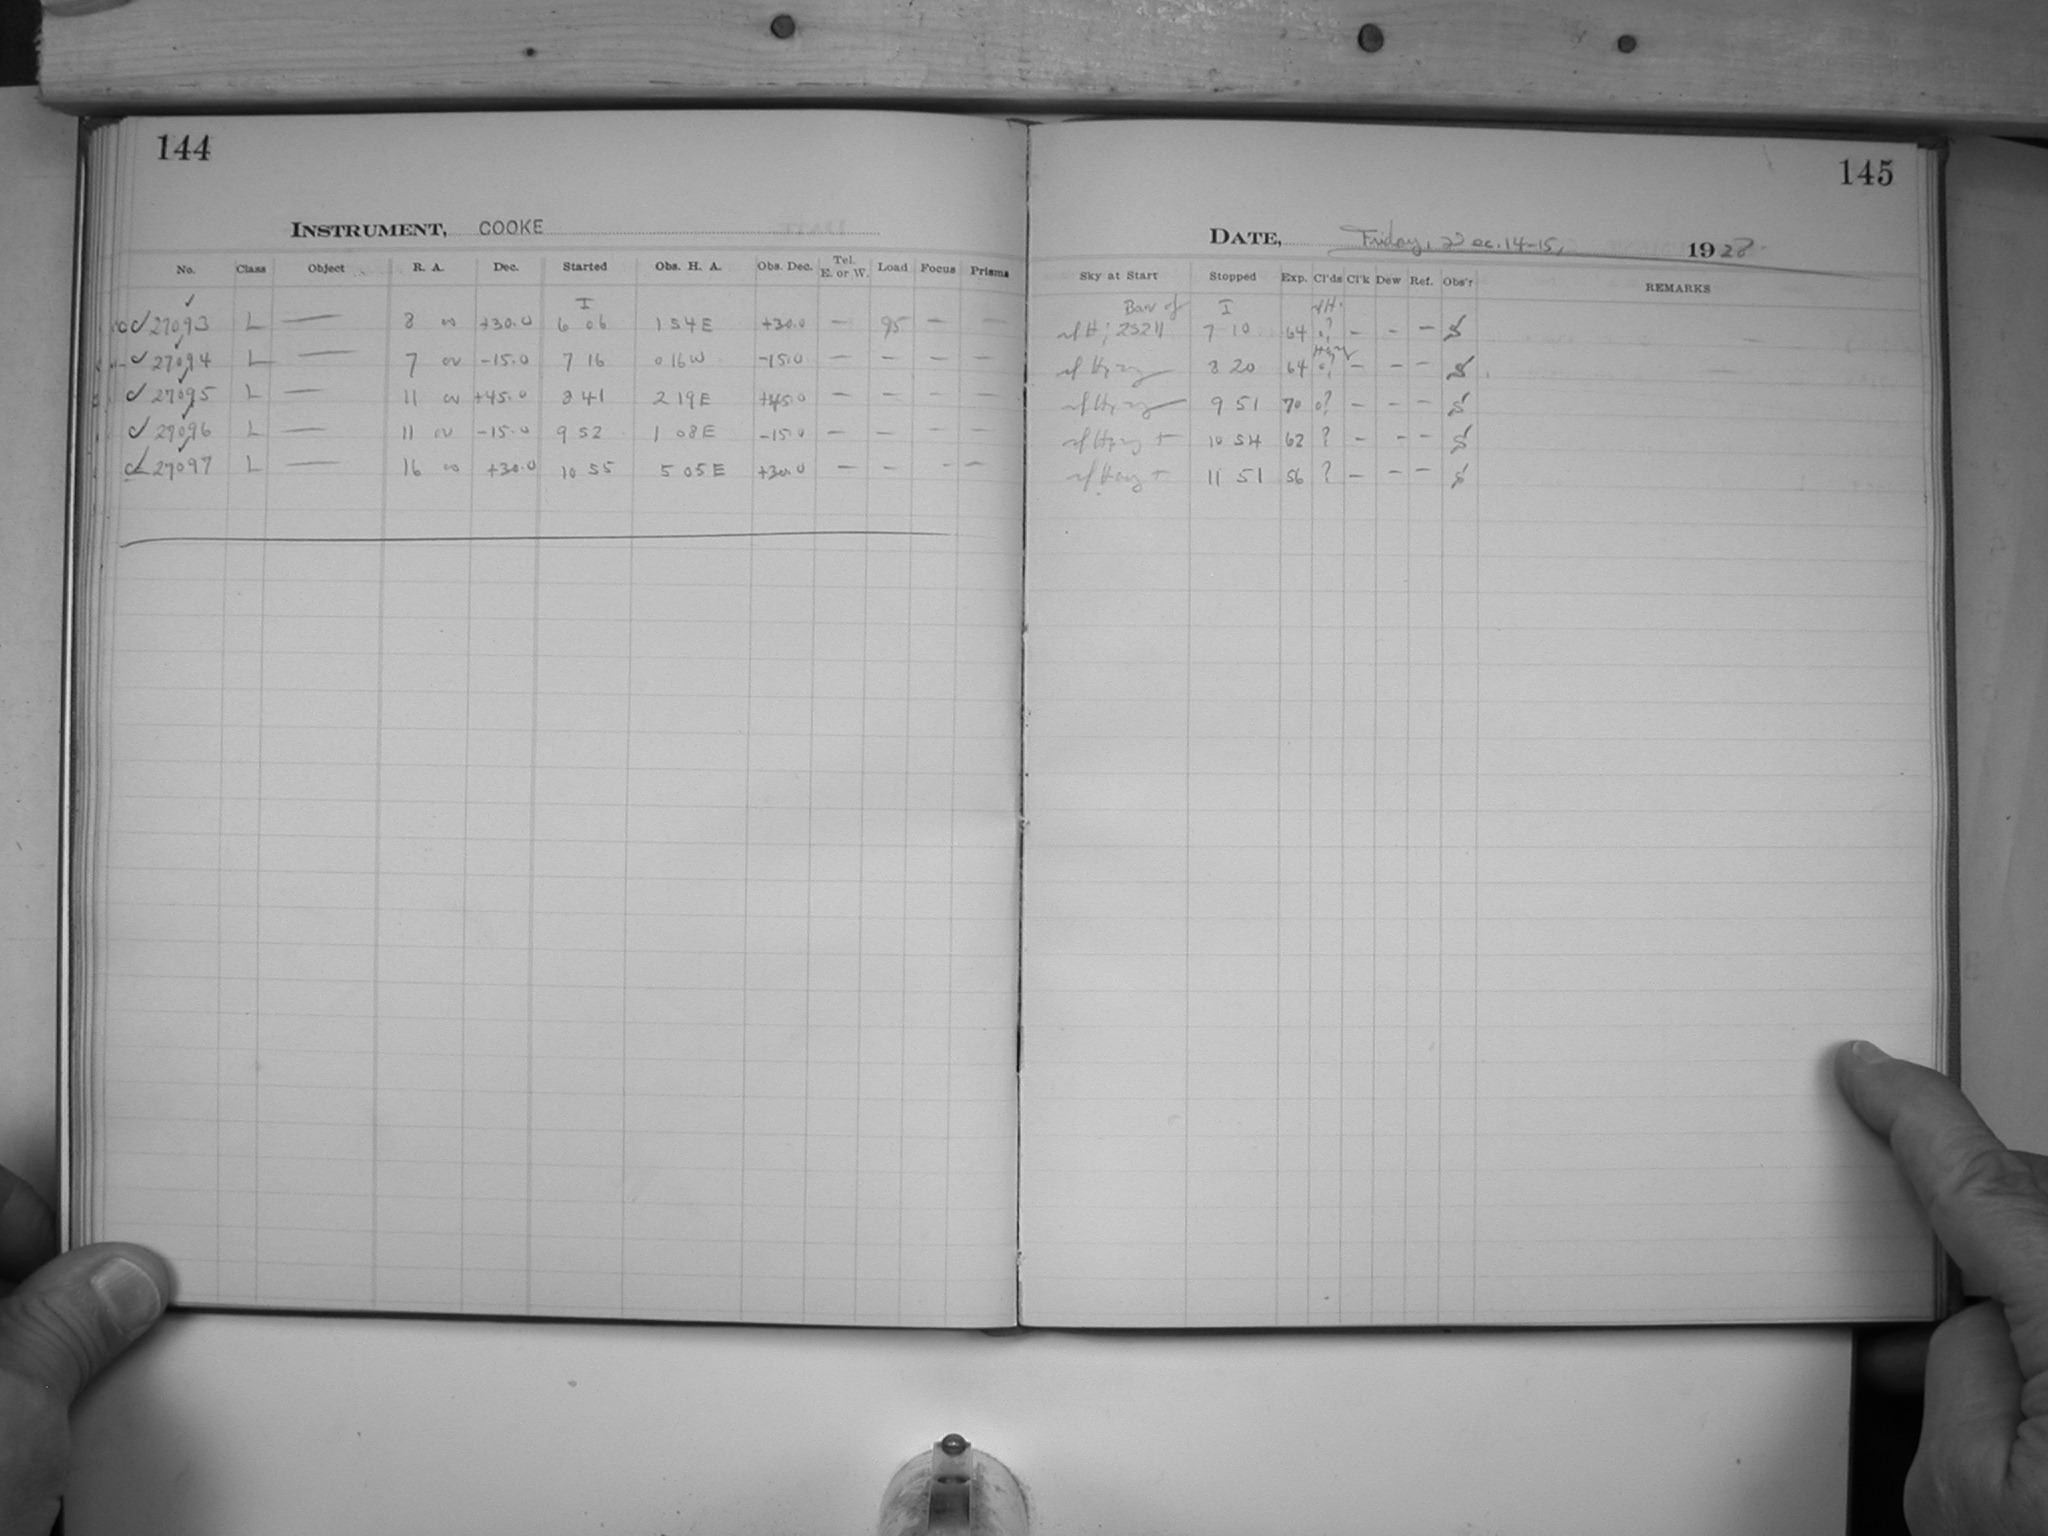 144
INSTRUMENT, COOKE
No. Class Object R. A. Dec. Started Obs. H. A. Obs. Dec. Tel. E. or W. Load Focus Prisms
I
27093 L — 8 00 +30.0 6 06 1 54 E +30.0 — 95 — —
27094 L — 7 00 -15.0 7 16 0 16 W -15.0 — — — —
27095 L — 11 00 +45.0 8 41 2 19 E +45.0 — — — —
27096 L — 11 00 -15.0 9 52 1 08 E -15.0 — — — —
27097 L — 16 00 +30.0 10 55 5 05 E +30.0 — — — —
145
DATE, Friday, Dec. 14-15, 1928.
Sky at Start Stopped Exp. Cl'ds Cl'k Dew Ref. Obs'r REMARKS
Bar of I
7 10 64 ? — — — S
8 20 64 — — — S
9 51 70 ? — — — S
10 54 62 ? — — — S
11 51 56 ? — — — S